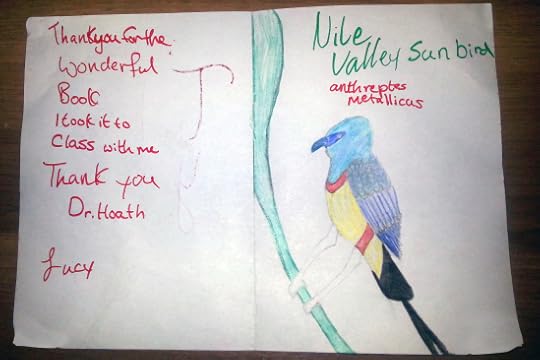 Thankyou for the
Wonderful
Book
I took it to
Class with me
Thank you
Dr. Hoath
Lucy
Nile
Valley Sunbird
anthreptes
metallicus